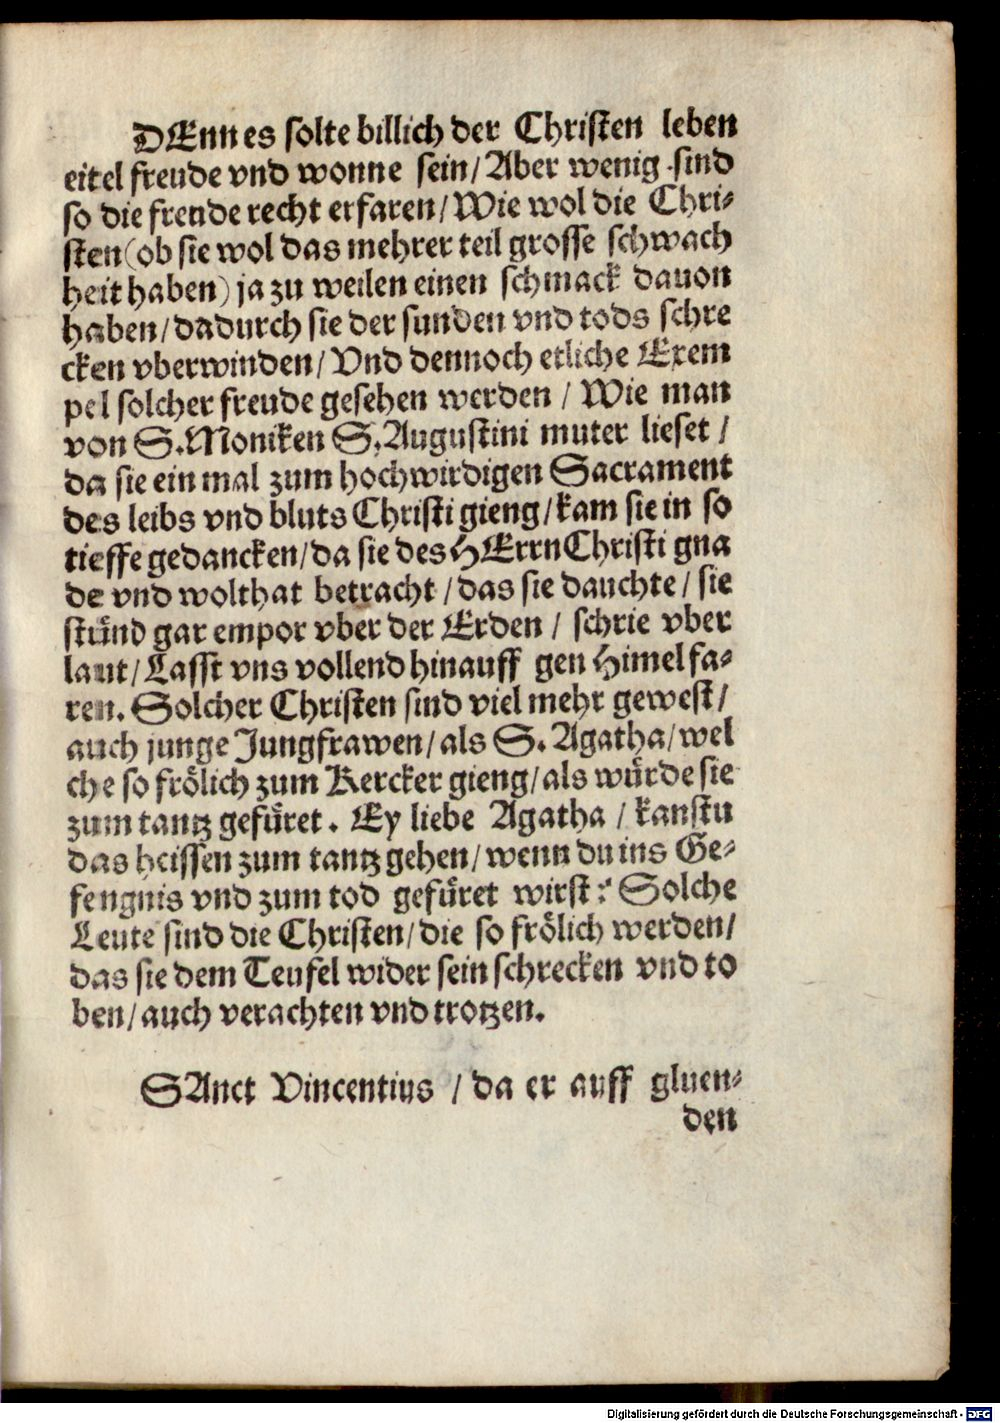 DEnn es solte billich der Christen leben
eitel freude vnd wonne sein/ Aber wenig sind
so die freude recht erfaren/ Wie wol die Chri-
sten (ob sie wol das mehrer teil grosse schwach
heit haben) ja zu weilen einen schmack dauon
haben/ dadurch sie der sunden vnd tods schre
cken vberwinden/ Vnd dennoch etliche Exem
pel solcher freude gesehen werden / Wie man
von S. Moniken S. Augustini muter lieset /
da sie ein mal zum hochwirdigen Sacrament
des leibs vnd bluts Christi gieng/ kam sie in so
tieffe gedancken/ da sie des HErrn Christi gna
de vnd wolthat betracht / das sie dauchte / sie
stünd gar empor vber der Erden / schrie vber
laut/ Lasst vns vollend hinauff gen Himel fa-
ren. Solcher Christen sind viel mehr gewest/
auch junge Jungfrawen/ als S. Agatha/ wel
che so frölich zum Kercker gieng/ als würde sie
zum tantz gefüret. Ey liebe Agatha / kanstu
das heissen zum tantz gehen/ wenn du ins Ge-
fengnis vnd zum tod gefüret wirst? Solche
Leute sind die Christen/ die so frölich werden/
das sie dem Teufel wider sein schrecken vnd to
ben/ auch verachten vnd trotzen.
SAnct Vincentius / da er auff gluen-
den
Digitalisierung gefördert durch die Deutsche Forschungsgemeinschaft - DFG